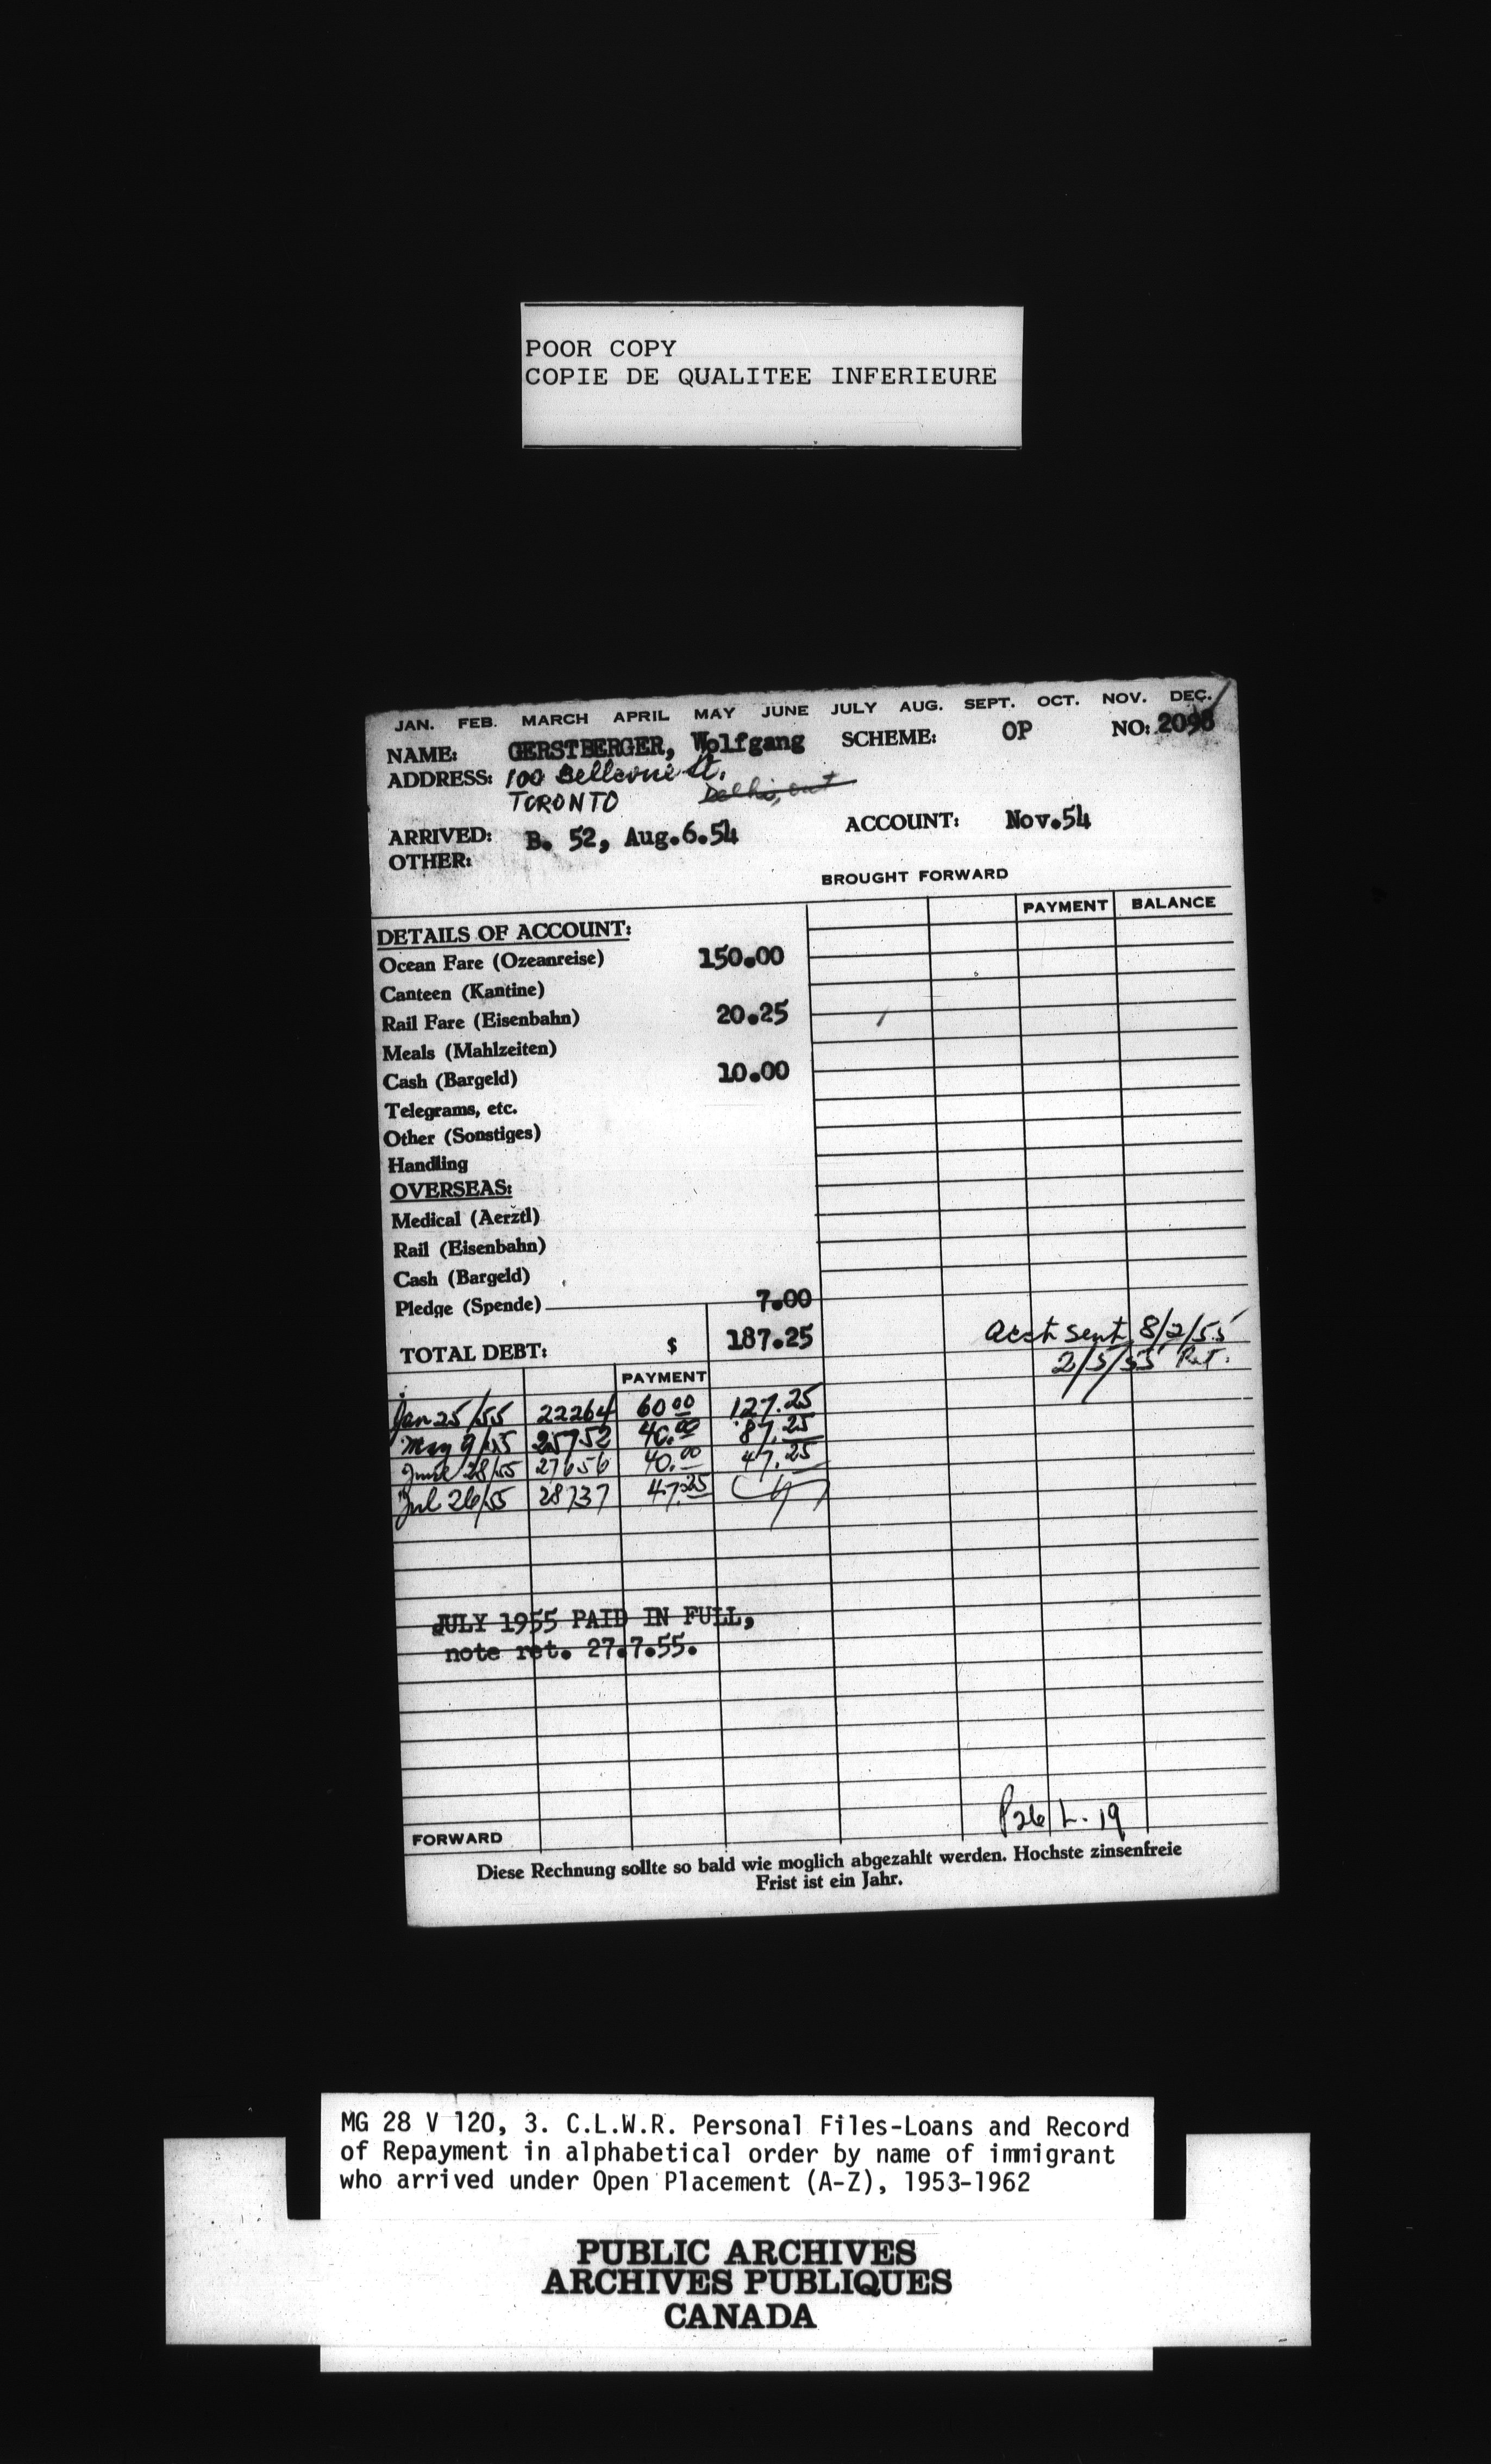 POOR COPY
COPIE DE QUALITEE INFERIEURE
JAN. FEB. MARCH APRIL MAY JUNE JULY AUG. SEPT. OCT. NOV. DEC.
NAME: GERSTBERGER, Wolfgang SCHEME: OP NO: 2098
ADDRESS: 100 Bellevue St.
TORONTO Delhi, ont
ARRIVED: B. 52, Aug.6.54 ACCOUNT: Nov.54
OTHER:
BROUGHT FORWARD
PAYMENT BALANCE
DETAILS OF ACCOUNT:
Ocean Fare (Ozeanreise) 150.00
Canteen (Kantine)
Rail Fare (Eisenbahn) 20.25
Meals (Mahlzeiten)
Cash (Bargeld) 10.00
Telegrams, etc.
Other (Sonstiges)
Handling
OVERSEAS:
Medical (Aerztl)
Rail (Eisenbahn)
Cash (Bargeld)
Pledge (Spende) 7.00
TOTAL DEBT: $ 187.25
Acct sent 8/2/55
2/5/55 Ret.
PAYMENT
Jan 25/55 22264 60.00 127.25
May 9/55 25752 40.00 87.25
June 28/55 27656 40.00 47.25
Jul 26/55 28737 47.25
JULY 1955 PAID IN FULL,
note ret. 27.7.55.
P26 L-19
FORWARD
Diese Rechnung sollte so bald wie moglich abgezahlt werden. Hochste zinsenfreie
Frist ist ein Jahr.
MG 28 V 120, 3. C.L.W.R. Personal Files-Loans and Record
of Repayment in alphabetical order by name of immigrant
who arrived under Open Placement (A-Z), 1953-1962
PUBLIC ARCHIVES
ARCHIVES PUBLIQUES
CANADA